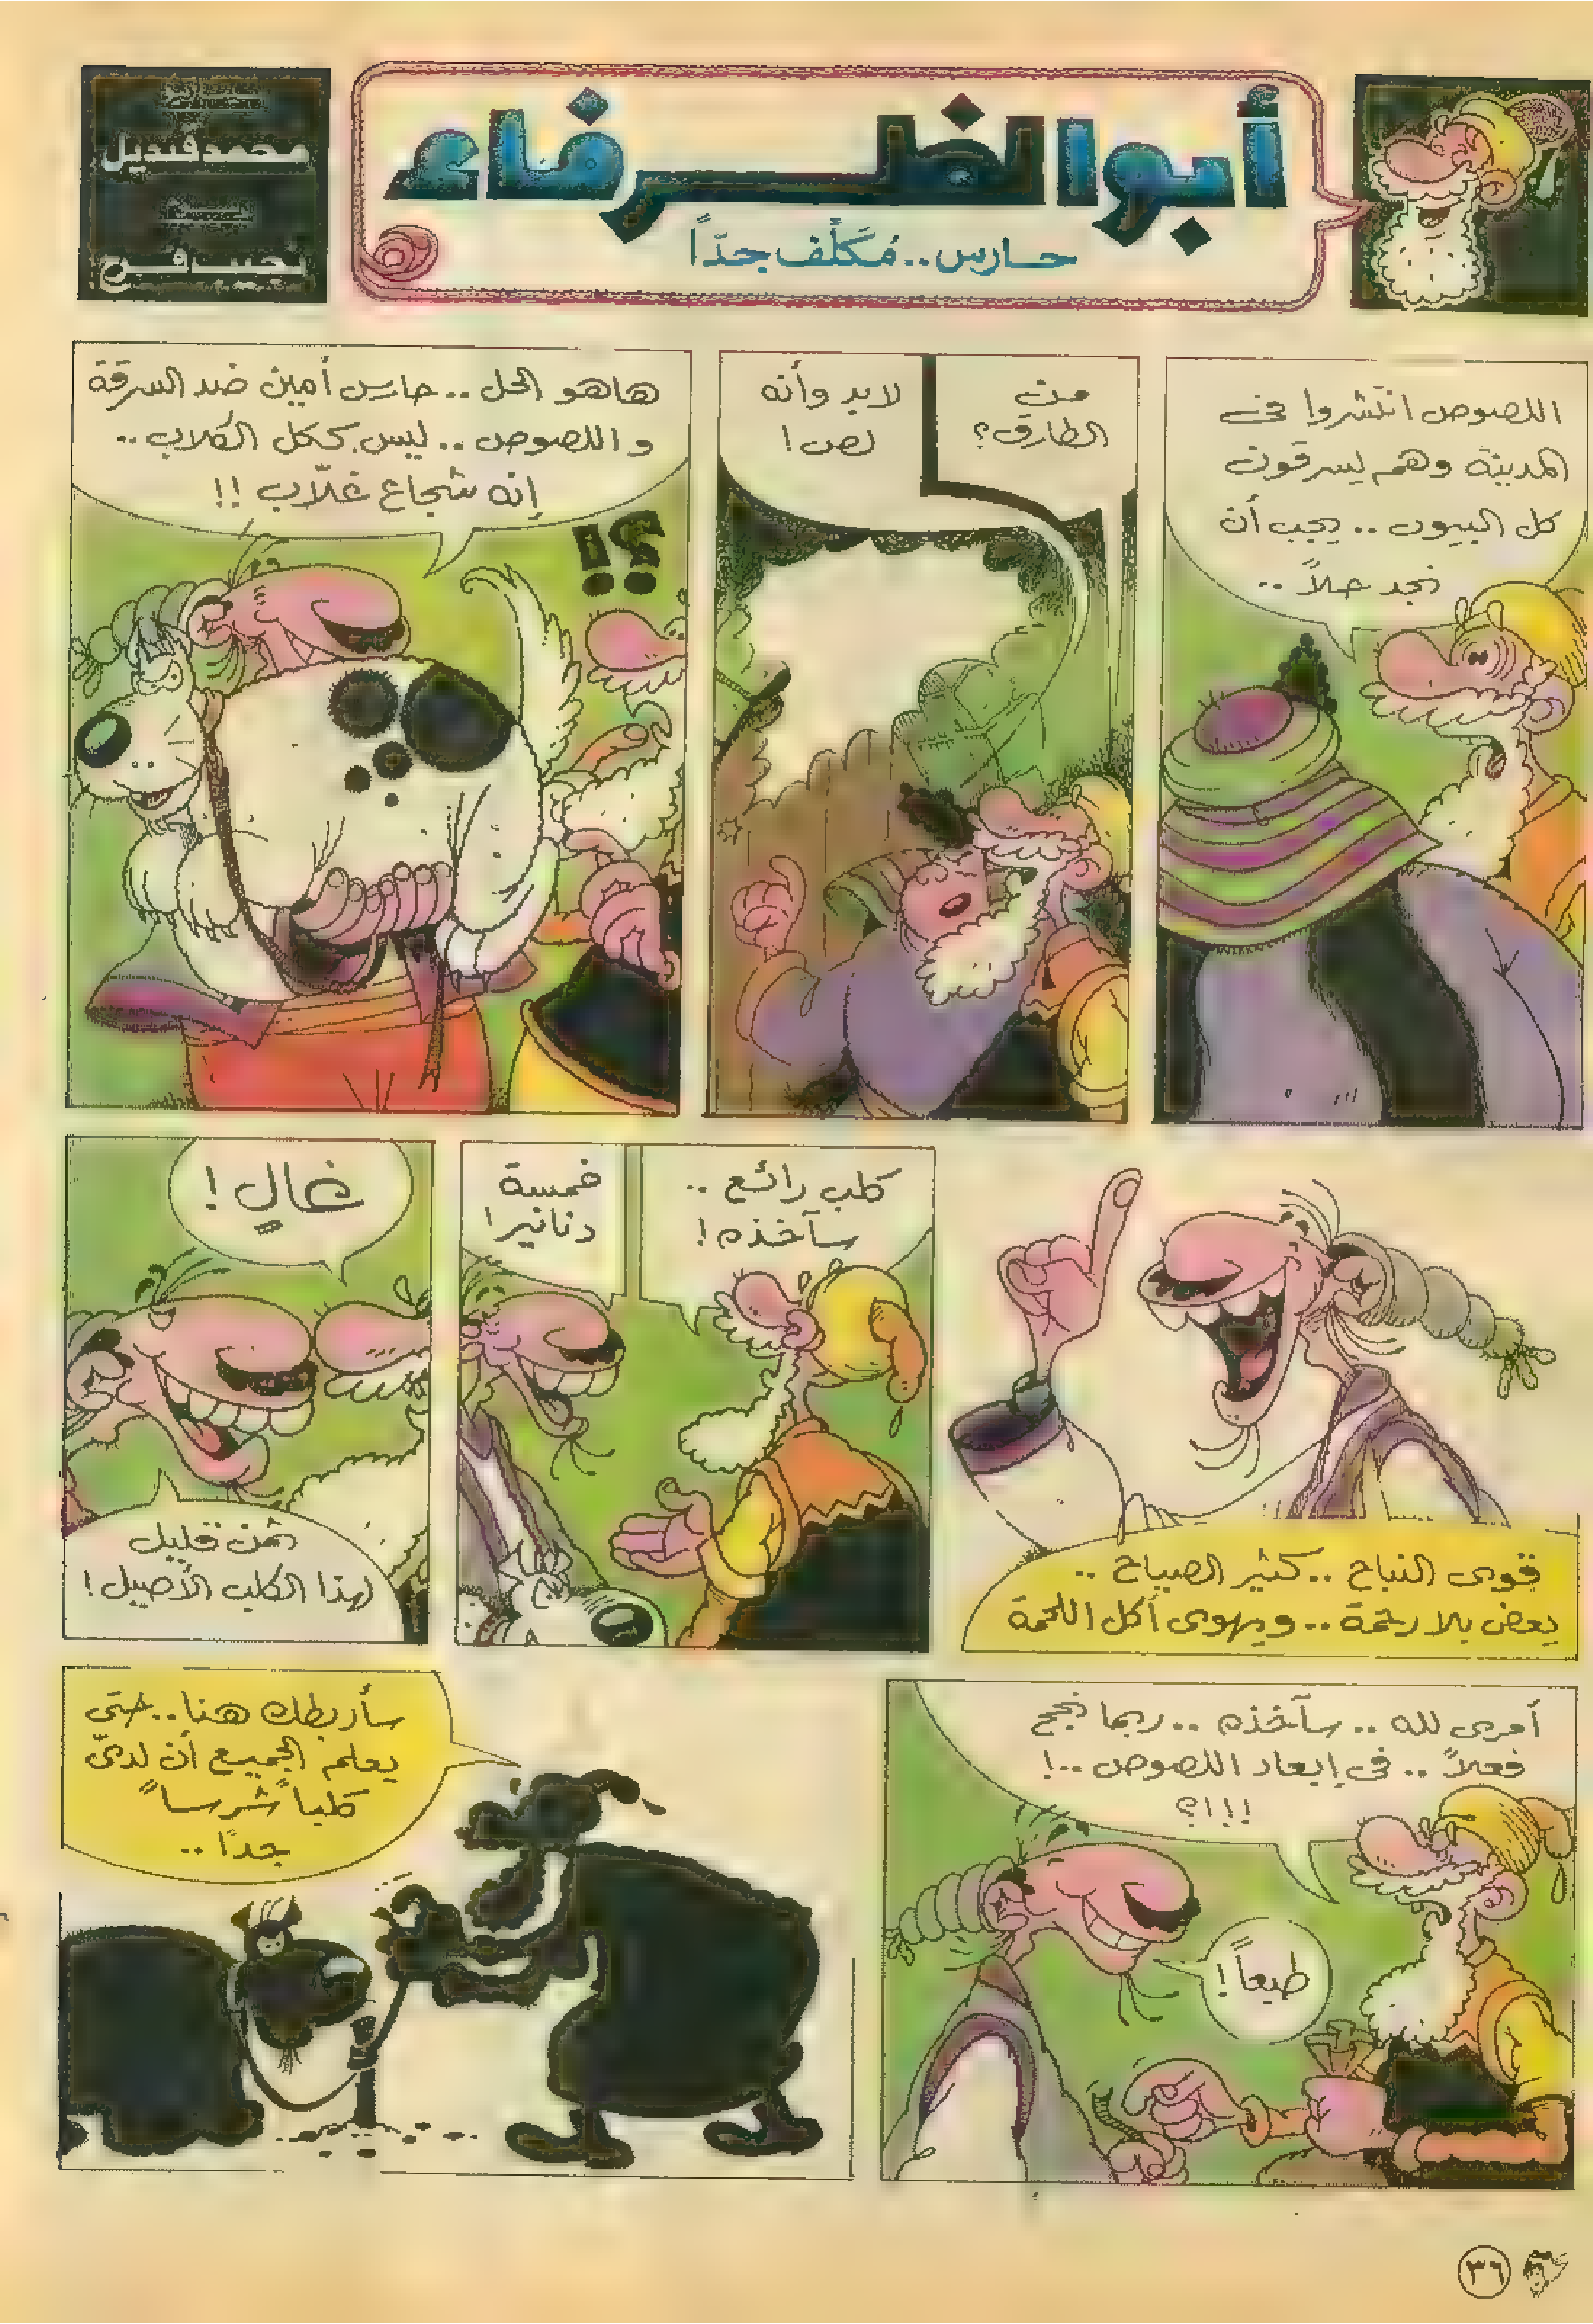 أبوالظرفاء
حارس..مُكَلِّف جدّاً
محمد قنديل
نجيب فرح
اللصوص انتشروا فى
المدينة وهم يسرقون
كل البيوت .. يجب أن
نجد حلاً ..
من
الطارق؟
لابد وأنه
لص!
هاهو الحل .. حارس أمين ضد السرقة
واللصوص .. ليس ككل الكلاب ..
إنه شجاع غلّاب !!
؟!
قوى النباح .. كثير الصياح ..
يعض بلا رحمة .. ويهوى أكل اللحمة
كلب رائع ..
سآخذه!
خمسة
دنانير!
غالٍ!
ثمن قليل
لهذا الكلب الأصيل!
أمرى لله .. سآخذه .. ربما نجح
فعلاً .. فى إبعاد اللصوص ..!
!!!؟
طبعاً!
سأربطك هنا .. حتى
يعلم الجميع أن لدىّ
كلباً شرساً
جداً ..
٣٦